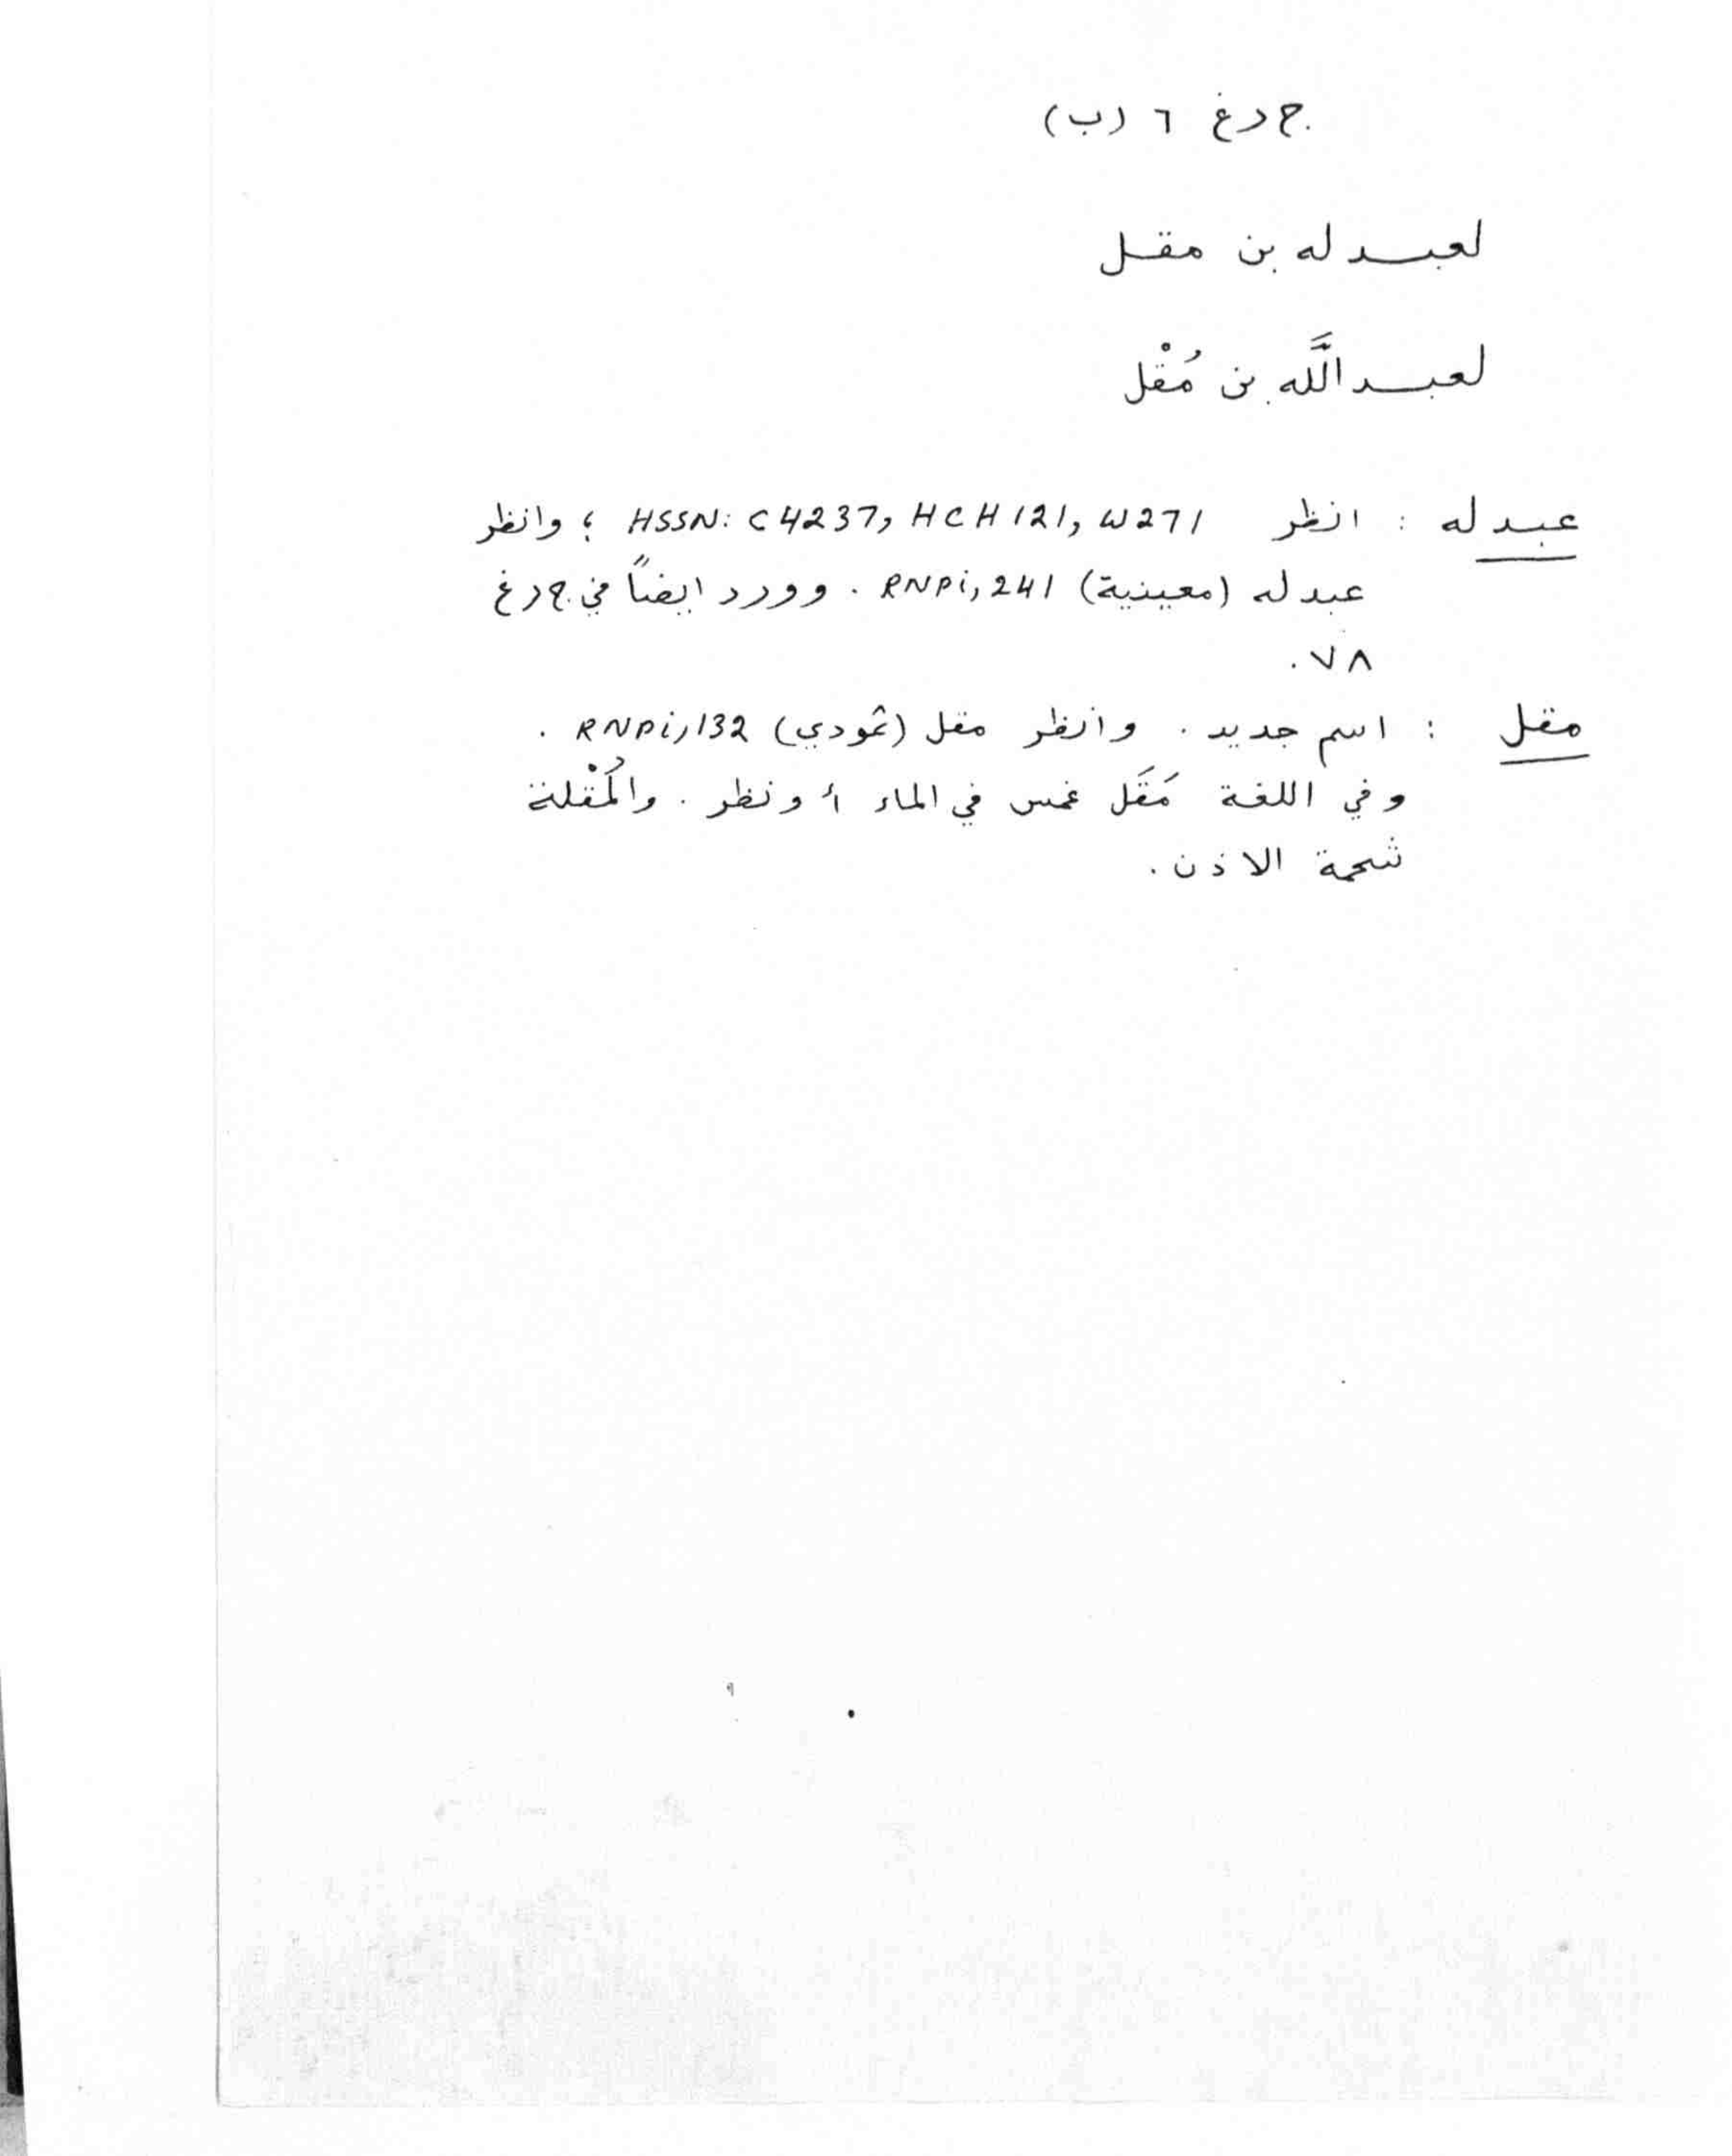 ج ر غ ٦ (ب)
لعبدله بن مقل
لعبد اللَّه بن مُقْل
عبدله : انظر HSSN: C4237, HCH121, W271 ؛ وانظر
عبدله (معينية) RNPi, 241 . وورد ايضاً في ج ر غ
٧٨ .
مقل : اسم جديد . وانظر مقل (ثمودي) RNPi, 132 .
وفي اللغة مَقَل غمس في الماء أو نظر . والمُقْلة
شحمة الاذن .